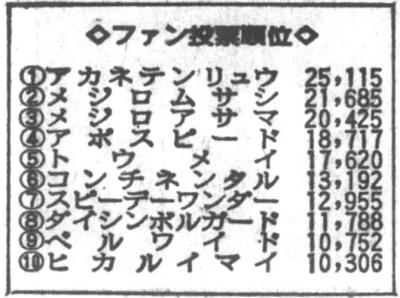 ◇ファン投票順位◇
①アカネテンリュウ 25,115
②メジロムサシ 21,685
③メジロアサマ 20,425
④アポスピード 18,717
⑤トウメイ 17,620
⑥コンチネンタル 13,192
⑦スピーデーワンダー 12,955
⑧ダイシンボルガード 11,788
⑨ペルシルワイド 10,752
⑩ヒカルイマイ 10,306